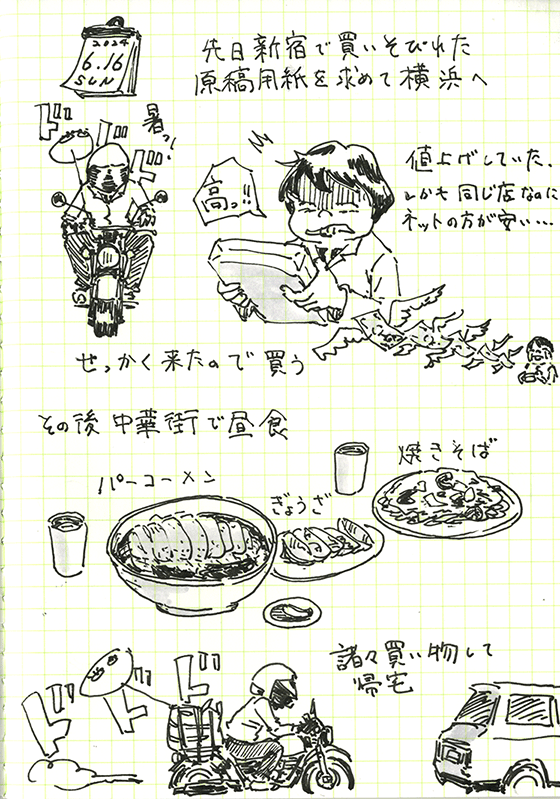 2024
6.16
SUN
先日新宿で買いそびれた
原稿用紙を求めて横浜へ
ドドド
暑っ!
高っ!!
値上げしていた、
しかも同じ店なのに
ネットの方が安い…
せっかく来たので買う
その後中華街で昼食
パーコーメン
ぎょうざ
焼きそば
諸々買い物して
帰宅
ドドド